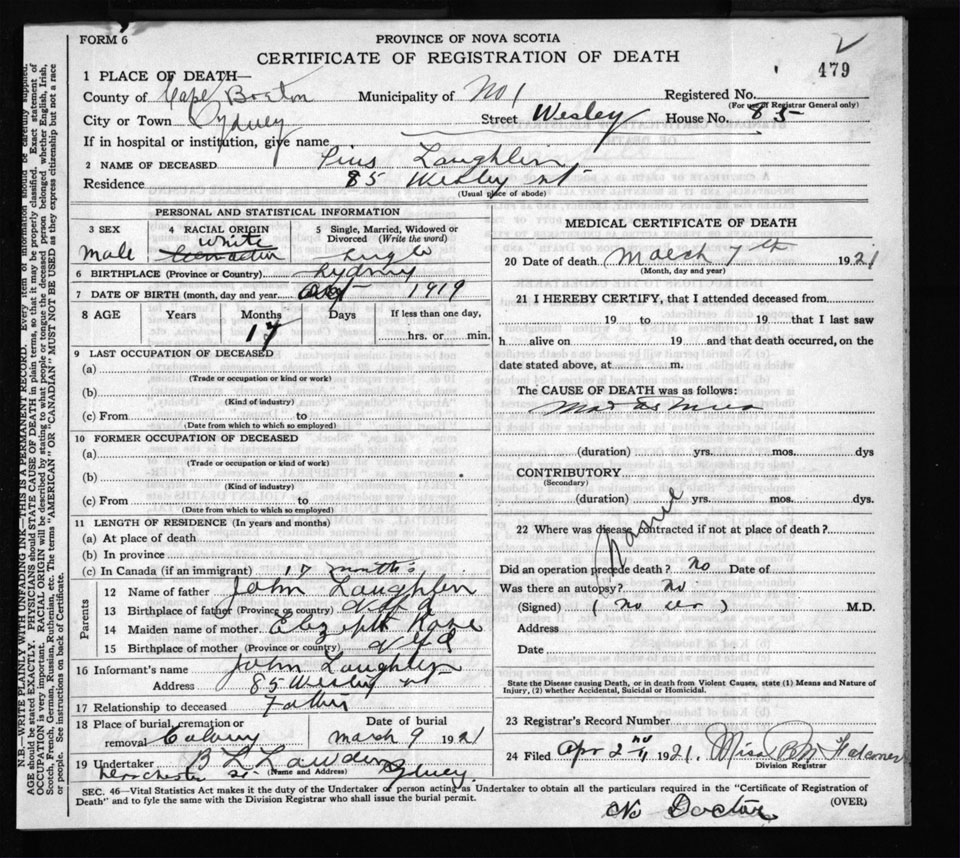 FORM 6
PROVINCE OF NOVA SCOTIA
CERTIFICATE OF REGISTRATION OF DEATH
479
1 PLACE OF DEATH—
County of Cape Breton Municipality of No 1 Registered No.
(For use of Registrar General only)
City or Town Sydney Street Wesley House No. 85
If in hospital or institution, give name
2 NAME OF DECEASED Pius Laughlin
Residence 85 Wesley St
(Usual place of abode)
PERSONAL AND STATISTICAL INFORMATION
3 SEX 4 RACIAL ORIGIN 5 Single, Married, Widowed or Divorced (Write the word)
male white single
6 BIRTHPLACE (Province or Country) Sydney
7 DATE OF BIRTH (month, day and year) Oct 1919
8 AGE Years Months Days If less than one day,
17 hrs. or min.
9 LAST OCCUPATION OF DECEASED
(a)
(Trade or occupation or kind or work)
(b)
(Kind of industry)
(c) From to
(Date from which to which so employed)
10 FORMER OCCUPATION OF DECEASED
(a)
(Trade or occupation or kind of work)
(b)
(Kind of industry)
(c) From to
(Date from which to which so employed)
11 LENGTH OF RESIDENCE (In years and months)
(a) At place of death
(b) In province
(c) In Canada (if an immigrant) 17 months
Parents
12 Name of father John Laughlin
13 Birthplace of father (Province or country) Nfld
14 Maiden name of mother
15 Birthplace of mother (Province or country)
16 Informant's name John Laughlin
Address 85 Wesley St
17 Relationship to deceased Father
18 Place of burial, cremation or removal Calvary Date of burial March 9 1921
19 Undertaker
(Name and Address) Dorchester St. Sydney.
MEDICAL CERTIFICATE OF DEATH
20 Date of death March 7th 1921
(Month, day and year)
21 I HEREBY CERTIFY, that I attended deceased from
19 to 19 that I last saw
h alive on 19 and that death occurred, on the
date stated above, at m.
The CAUSE OF DEATH was as follows:
(duration) yrs. mos. dys
CONTRIBUTORY
(Secondary)
(duration) yrs. mos. dys.
22 Where was disease contracted if not at place of death?
Did an operation precede death? no Date of
Was there an autopsy? no
(Signed) M.D.
Address
Date
State the Disease Causing Death, or in death from Violent Causes, state (1) Means and Nature of
Injury, (2) whether Accidental, Suicidal or Homicidal.
23 Registrar's Record Number
24 Filed Apr 2nd 1921. Miss
Division Registrar
SEC. 46—Vital Statistics Act makes it the duty of the Undertaker or person acting as Undertaker to obtain all the particulars required in the "Certificate of Registration of
Death" and to fyle the same with the Division Registrar who shall issue the burial permit.
(OVER)
No Doctor
N.B.—WRITE PLAINLY WITH UNFADING INK—THIS IS A PERMANENT RECORD. Every item of information should be carefully supplied.
AGE should be stated EXACTLY. PHYSICIANS should STATE CAUSE OF DEATH in plain terms, so that it may be properly classified. Exact statement of
OCCUPATION is very important. RACIAL ORIGIN will be described by stating to what people or tongue the deceased person belonged whether English, Irish,
Scotch, French, German, Russian, Ruthenian, etc. The terms "AMERICAN" OR "CANADIAN" MUST NOT BE USED as they express citizenship but not a race
or people. See instructions on back of Certificate.